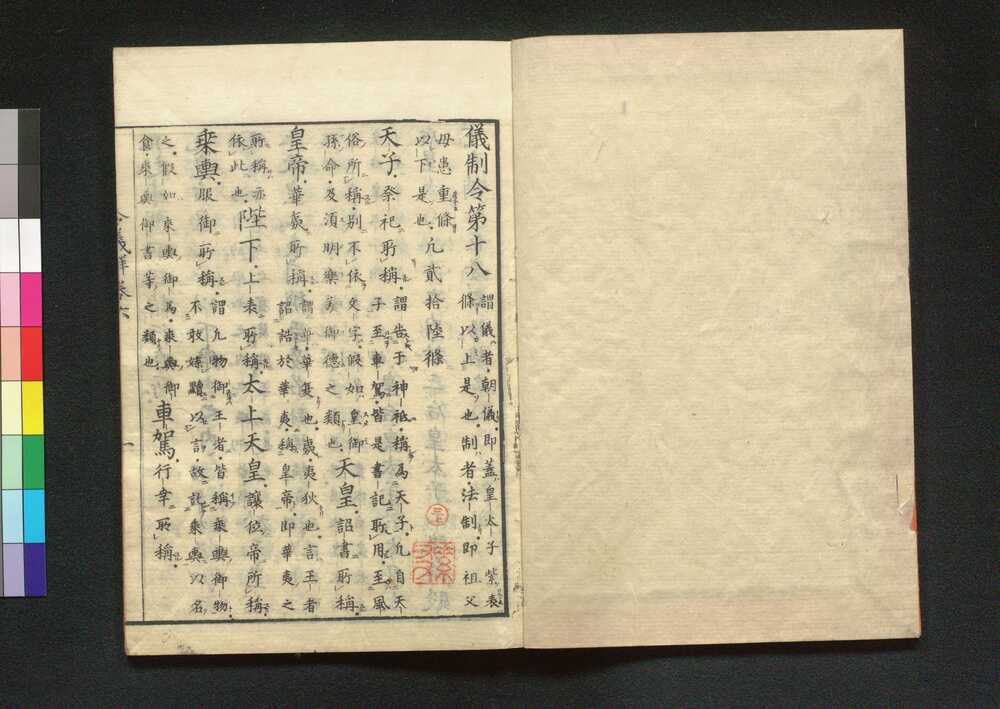 儀制令第十八 謂儀者朝儀即蓋皇太子紫表
條以上是也制者法制即祖父
母患重條
以下是也 凡貳拾陸條
天子祭祀所稱 謂告于神祇稱為天子凡自天
子至車駕皆是書記所用至風
俗所稱別不依文字假如皇御
孫命及須明樂美御德之類也 天皇詔書所稱
皇帝華夷所稱 謂華華夏也夷夷狄也言王者
詔誥於華夷稱皇帝即華夷之
所稱亦
依此也 陛下上表所稱太上天皇讓位帝所稱
乘輿服御所稱 謂凡物御王者皆稱乘輿御物
不敢媟黷以言故託乘輿以名
之假如乘輿御馬乘輿御
食乘輿御書等之類也 車駕行幸所稱